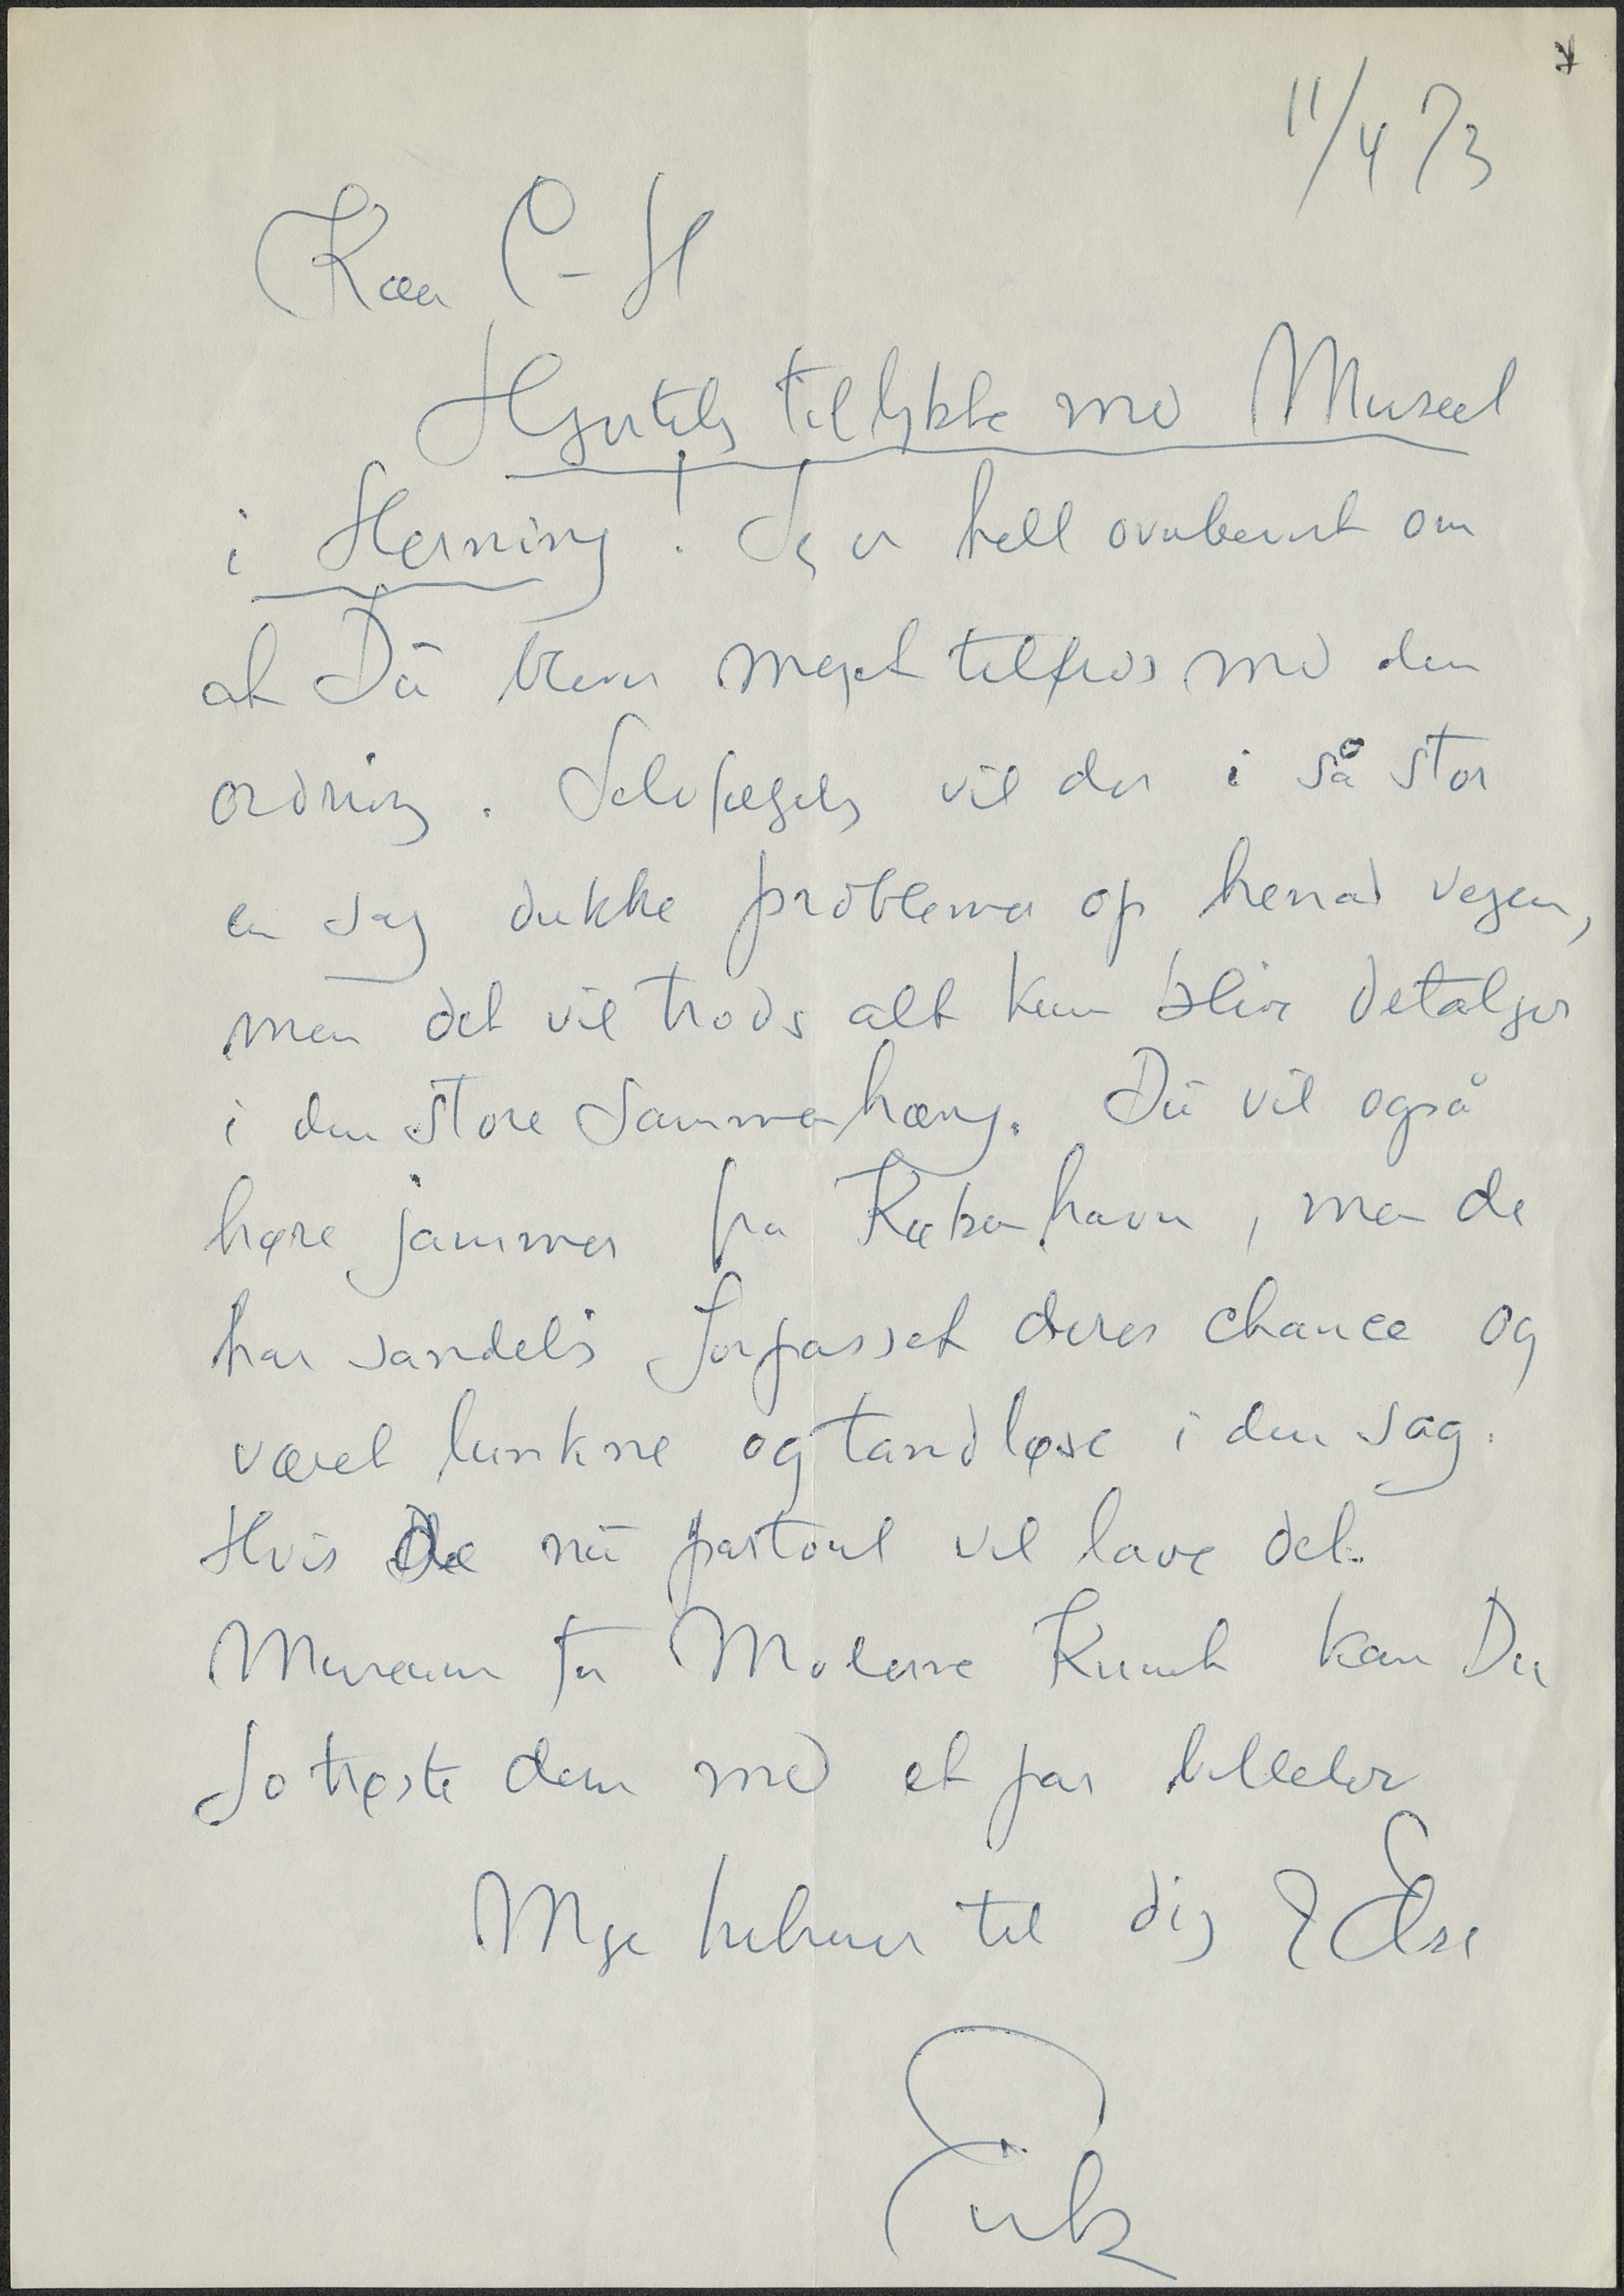 11/4 73
Kær C-H
Hjertelig tillykke med Museet
i Herning! Jeg er helt overbevist om
at Du bliver meget tilfreds med den
ordning. Selvfølgelig vil der i så stor
en sag dukke problemer op henad vejen,
men det vil trods alt kun blive detaljer
i den store Sammenhæng. Du vil også
høre jammer fra København, men de
har sandelig forpasset deres chance og
været lunkne og tandløse i den sag.
Hvis De nu partout vil lave det
Museum for Moderne Kunst kan Du
jo trøste dem med et par billeder
Mge hilsner til dig & Else
Erik